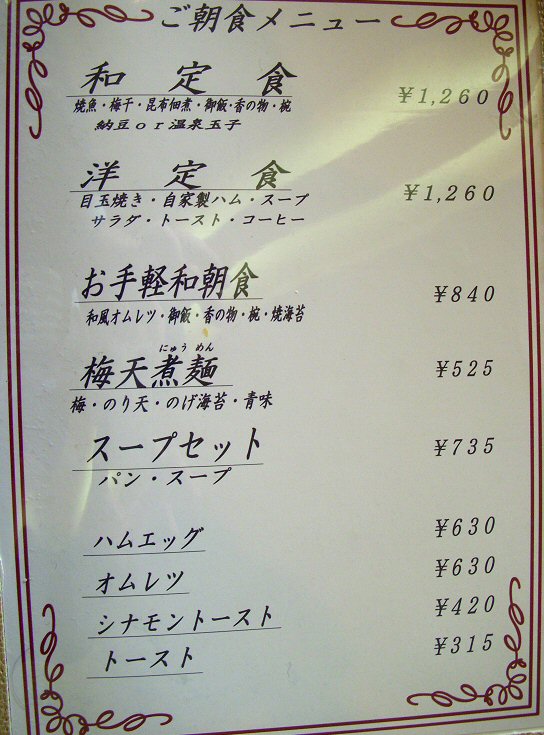 ご朝食メニュー
和定食 ¥1,260
焼魚・梅干・昆布佃煮・御飯・香の物・椀
納豆or温泉玉子
洋定食 ¥1,260
目玉焼き・自家製ハム・スープ
サラダ・トースト・コーヒー
お手軽和朝食 ¥840
和風オムレツ・御飯・香の物・椀・焼海苔
にゅうめん
梅天煮麺 ¥525
梅・のり天・のげ海苔・青味
スープセット ¥735
パン・スープ
ハムエッグ ¥630
オムレツ ¥630
シナモントースト ¥420
トースト ¥315